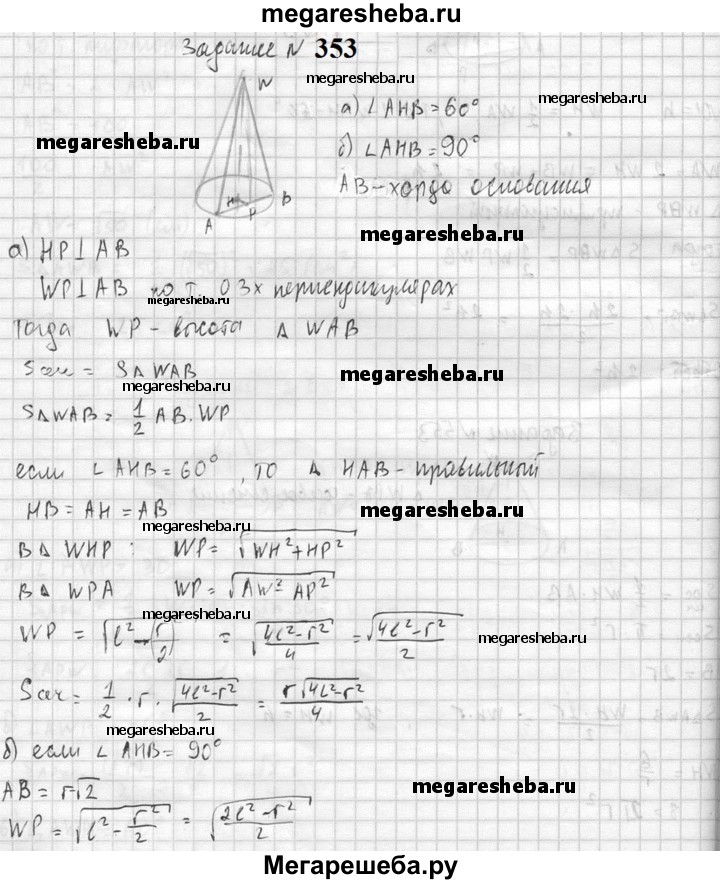 megaresheba.ru
Задание N 353
megaresheba.ru
W
megaresheba.ru
megaresheba.ru
а) ∠AHB = 60°
б) ∠AHB = 90°
AB - хорда основания
H P B
A
megaresheba.ru
а) HP ⊥ AB
WP ⊥ AB по т. о 3х перпендикулярах
megaresheba.ru
Тогда WP - высота Δ WAB
Sсеч = SΔWAB
megaresheba.ru
megaresheba.ru
SΔWAB = 1/2 AB · WP
если ∠AHB = 60°, то Δ HAB - правильный
HB = AH = AB
megaresheba.ru
megaresheba.ru
В Δ WHP : WP = √(WH² + HP²)
В Δ WPA WP = √(AW² AP²)
megaresheba.ru
WP = √(l² - (r/2) = √((4l² - r²)/4) = √(4l² - r²)/2
megaresheba.ru
Sсеч = 1/2 · r · √(4l² - r²)/2 = r√(4l² - r²)/4
megaresheba.ru
б) если ∠AHB = 90°
AB = r√2
megaresheba.ru
WP = √(l² - r²/2) = √((2l² - r²)/2)
Мегарешеба.ру